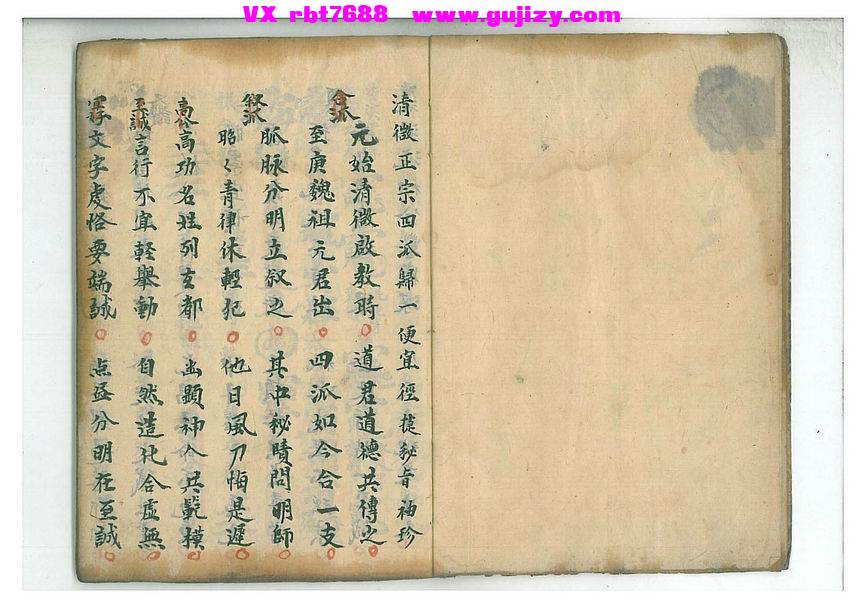 VX rbt7688 www.gujizy.com
清微正宗四派歸一便宜徑捷秘旨袖珍
元始清微啟教時 道君道德共傳之
合派
至庚魏祖元君出 四派如今合一支
脈脉分明立叙之 其中秘賾問明師
叙派
昭々青律休輕犯 他日風刀悔是遲
高功名姓列玄都 出顯神人共範模
至誠
言行不宜輕舉動 自然造化合虛無
文字處恪要端誠 点畫分明在至誠